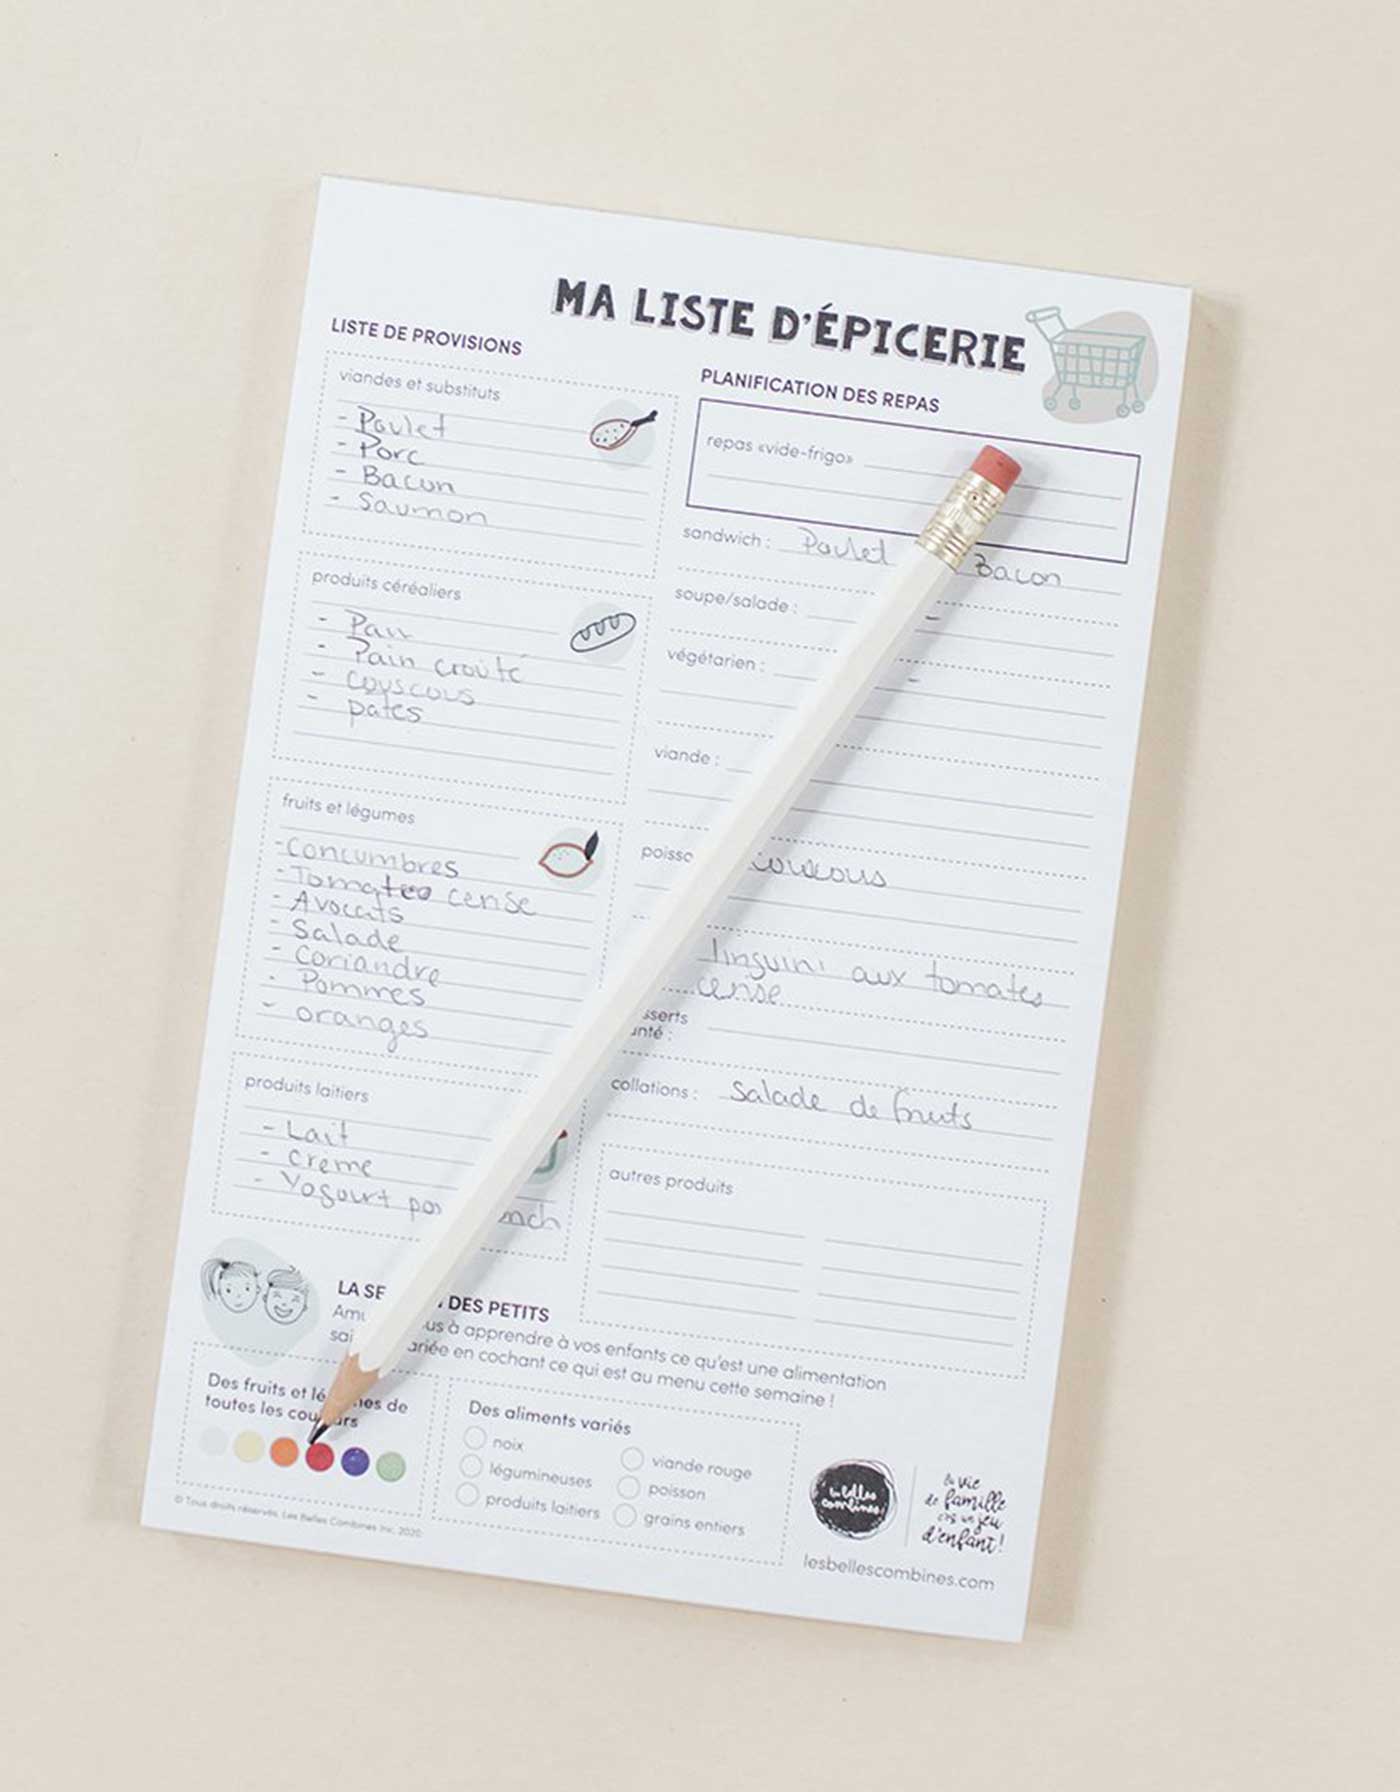 MA LISTE D'ÉPICERIE
LISTE DE PROVISIONS
viandes et substituts
- Poulet
- Porc
- Bacon
- Saumon
produits céréaliers
- Pain
- Pain croûté
- couscous
- pates
fruits et légumes
- Concumbres
- Tomates cerise
- Avocats
- Salade
- Coriandre
- Pommes
- oranges
produits laitiers
- Lait
- Creme
- Yogourt
PLANIFICATION DES REPAS
repas «vide-frigo»
sandwich : Poulet Bacon
soupe/salade : -
végétarien : -
viande :
poisso couscous
linguini aux tomates
cerise
sserts
anté :
collations : Salade de fruits
autres produits
LA SE DES PETITS
us à apprendre à vos enfants ce qu'est une alimentation
ariée en cochant ce qui est au menu cette semaine !
Des fruits et lé mes de
toutes les cou urs
Des aliments variés
noix
légumineuses
produits laitiers
viande rouge
poisson
grains entiers
les belles
combines!
la vie
de famille
c'est un jeu
d'enfant!
lesbellescombines.com
© Tous droits réservés, Les Belles Combines Inc, 2020